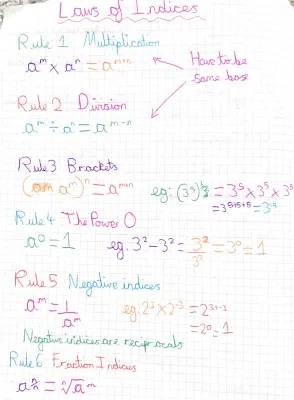 Laws of Indices
Rule 1 Multiplication
aᵐ × aⁿ = aᵐ⁺ⁿ
Have to be
same base
Rule 2 Division
aᵐ ÷ aⁿ = aᵐ⁻ⁿ
Rule 3 Brackets
aᵐ)ⁿ = aᵐⁿ
eg: = 3⁵ × 3⁵ × 3⁵
= 3⁵⁺⁵⁺⁵ = 3¹⁵
Rule 4 The Power 0
a⁰ = 1
eg. 3² - 3² = 3²/3² = 3⁰ = 1
Rule 5 Negative indices
aᵐ = 1/aᵐ
eg: 2³ × 2⁻³ = 2³⁺⁻³
= 2⁰ = 1
Negative indices are reciprocals
Rule 6 Fraction Indices
= ⁿ√aᵐ